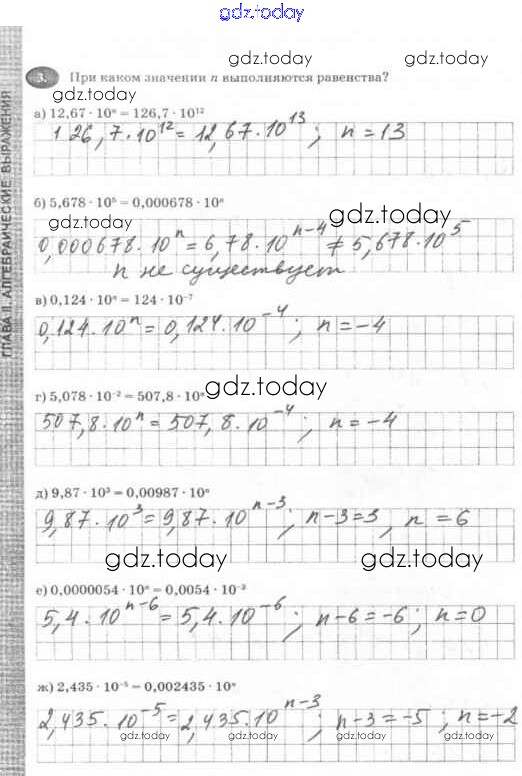 gdz.today
gdz.today gdz.today
3. При каком значении n выполняются равенства?
gdz.today
а) 12,67 · 10ⁿ = 126,7 · 10¹²
126,7 · 10¹² = 12,67 · 10¹³; n = 13
б) 5,678 · 10⁵ = 0,000678 · 10ⁿ
gdz.today gdz.today
0,000678 · 10ⁿ = 6,78 · 10ⁿ⁻⁴ ≠ 5,678 · 10⁵
n не существует
в) 0,124 · 10ⁿ = 124 · 10⁻⁷
0,124 · 10ⁿ = 0,124 · 10⁻⁴; n = −4
г) 5,078 · 10⁻² = 507,8 · 10ⁿ
gdz.today
507,8 · 10ⁿ = 507,8 · 10⁻⁴; n = −4
д) 9,87 · 10³ = 0,00987 · 10ⁿ
9,87 · 10³ = 9,87 · 10ⁿ⁻³; n − 3 = 3, n = 6
gdz.today gdz.today
е) 0,0000054 · 10ⁿ = 0,0054 · 10⁻³
5,4 · 10ⁿ⁻⁶ = 5,4 · 10⁻⁶; n − 6 = −6; n = 0
ж) 2,435 · 10⁻⁵ = 0,002435 · 10ⁿ
2,435 · 10⁻⁵ = 2,435 · 10ⁿ⁻³; n − 3 = −5; n = −2
gdz.today gdz.today gdz.today gdz.today
ГЛАВА II. АЛГЕБРАИЧЕСКИЕ ВЫРАЖЕНИЯ